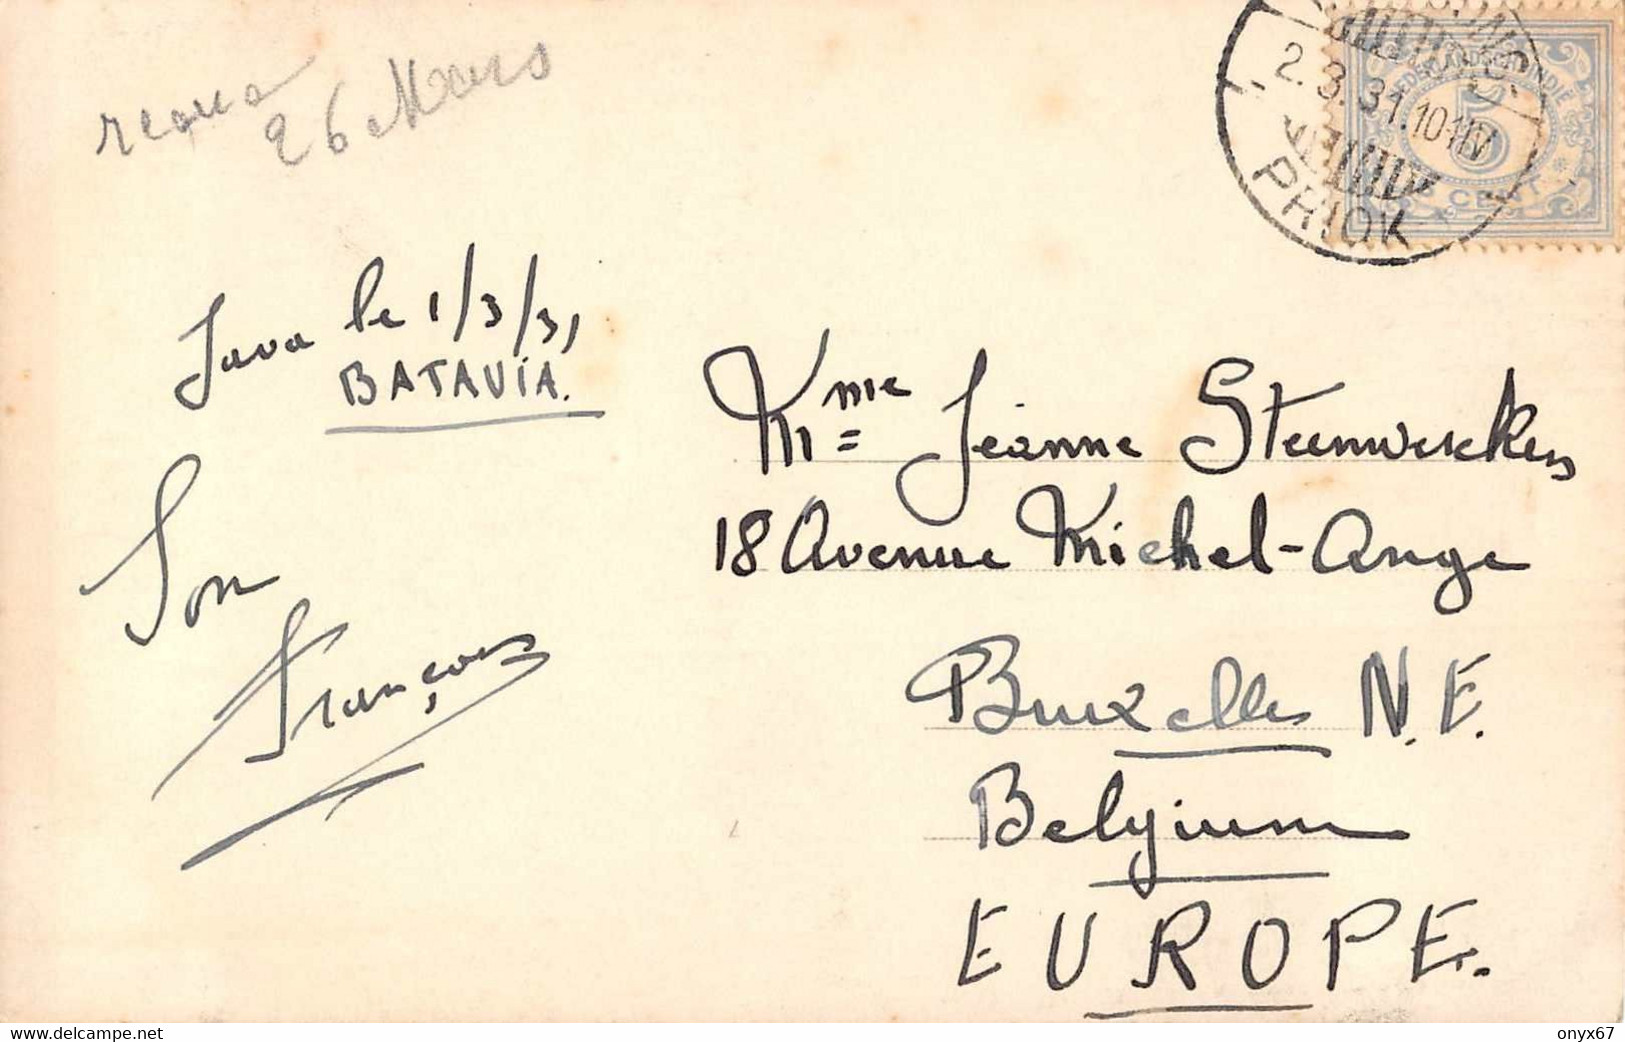 26 Mars
2.3.31.10-11V
PRIOK
NEDERLANDSCH-INDIE
5
CENT
Java le 1/3/31
BATAVIA.
Son
François
Mme Jeanne Steenwerckers
18 Avenue Michel-Ange
Bruxelles N.E.
Belgium
EUROPE.
http://www.delcampe.net
onyx67